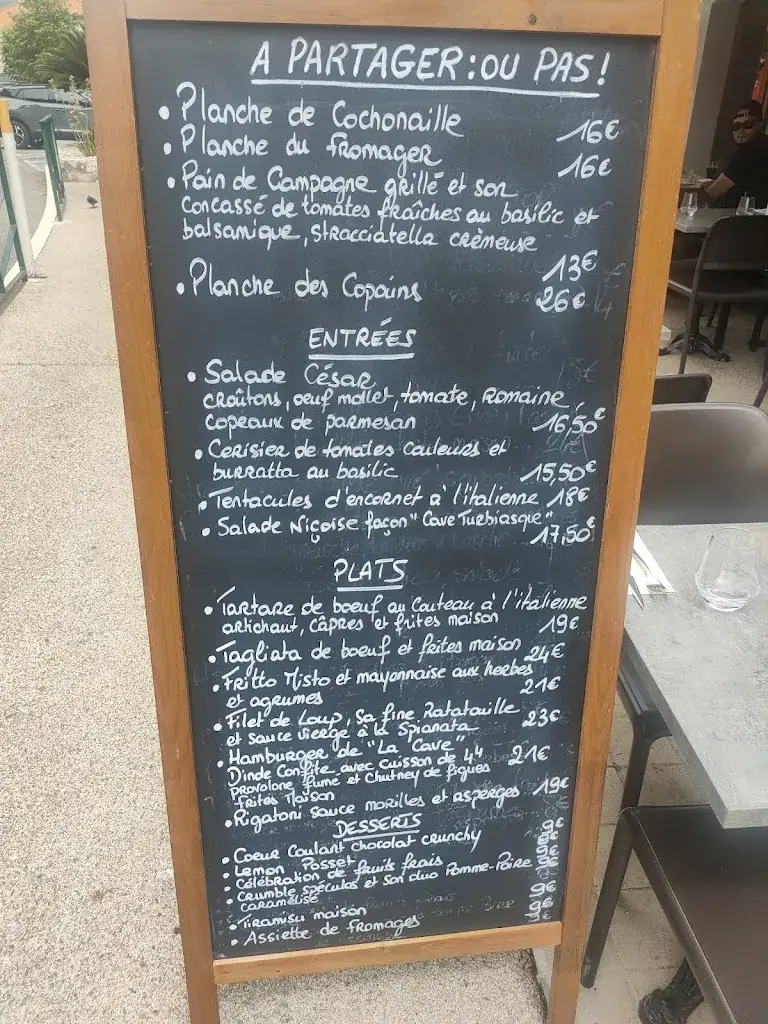 A PARTAGER: OU PAS!
• Planche de Cochonaille 16€
• Planche du fromager 16€
• Pain de Campagne grillé et son
concassé de tomates fraîches au basilic et
balsamique, stracciatella crèmeuse
13€
• Planche des Copains 26€
ENTRÉES
• Salade César
croûtons, oeuf mollet, tomate, romaine,
copeaux de parmesan 16,50€
• Cerisier de tomates couleurs et
burratta au basilic 15,50€
• Tentacules d'encornet à l'italienne 18€
• Salade Niçoise façon "Cave Turbiasque"
17,50€
PLATS
• Tartare de boeuf au Couteau à l'italienne
artichaut, câpres et frites maison 19€
• Tagliata de boeuf et frites maison 24€
• Fritto Misto et mayonnaise aux herbes
et agrumes 21€
• Filet de Loup, Sa fine Ratatouille 23€
et sauce vierge à la Spianata
• Hamburger de "La Cave" 21€
Dinde Confite avec Cuisson de 4H
provolone fumé et Chutney de figues
frites Maison
• Rigatoni sauce morilles et asperges 19€
DESSERTS
• Coeur Coulant chocolat crunchy
• Lemon Posset
• Célébration de fruits frais
• Crumble spéculos et son duo Pomme-Poire
caramélisé
• Tiramisu maison
• Assiette de fromages